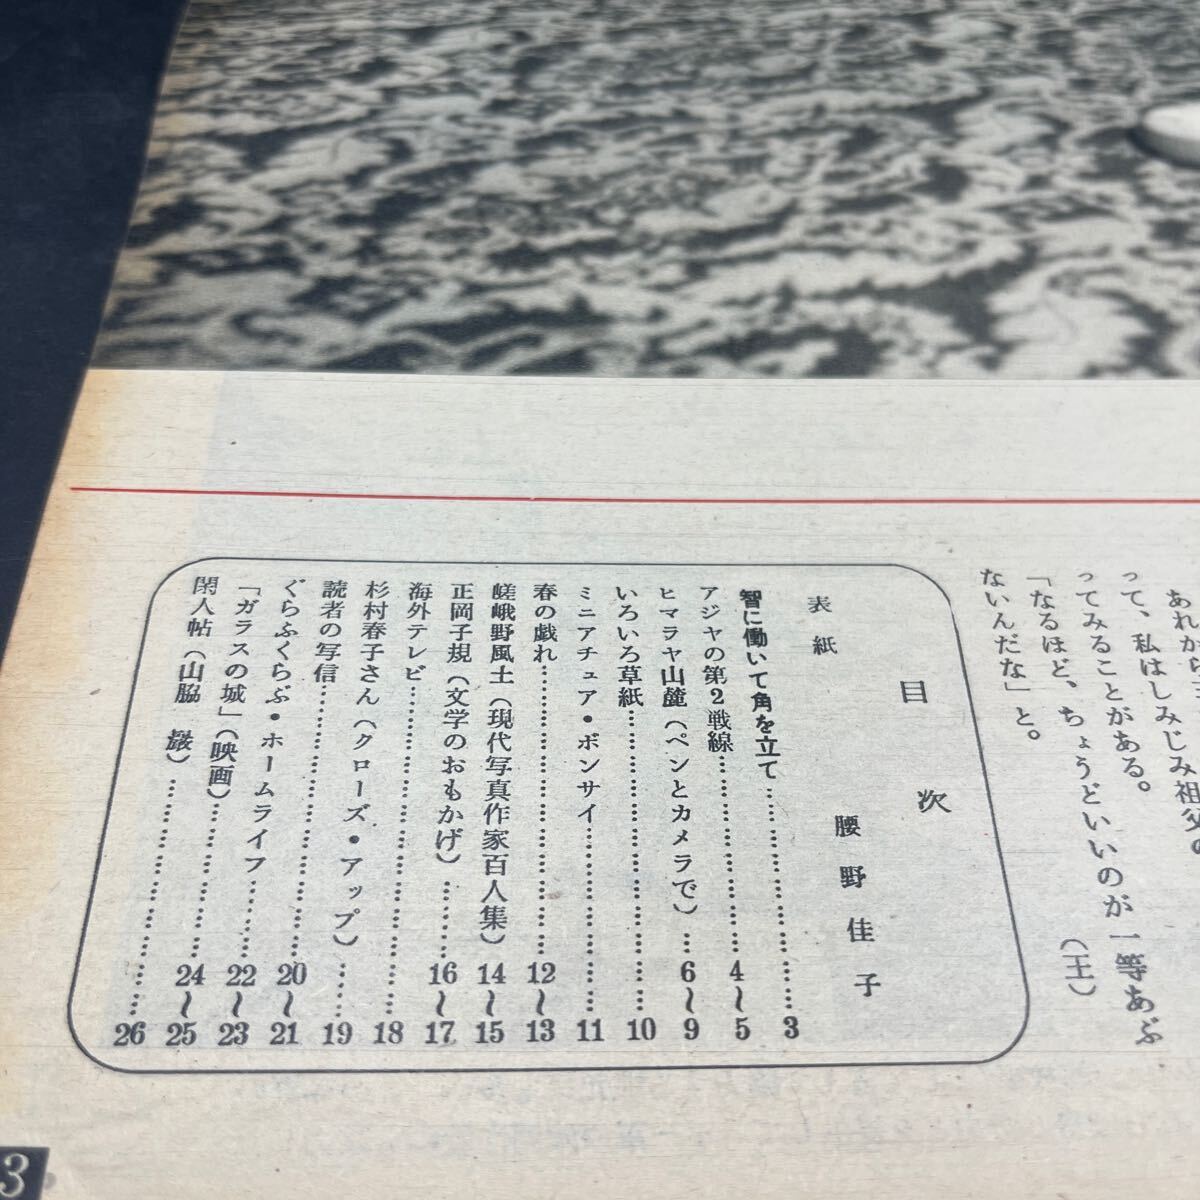 って、私はしみじみ祖父の
ってみることがある。
「なるほど、ちょうどいいのが一等あぶ
ないんだな」と。
（王）
目次
表紙 腰野佳子
智に働いて角を立て……………3
アジヤの第2戦線……………4〜5
ヒマラヤ山麓（ペンとカメラで）…6〜9
いろいろ草紙……………10
ミニアチュア・ボンサイ……………11
春の戯れ……………12〜13
嵯峨野風土（現代写真作家百人集）14〜15
正岡子規（文学のおもかげ）……16〜17
海外テレビ……………18
杉村春子さん（クローズ・アップ）……19
読者の写信……………20〜21
ぐらふくらぶ・ホームライフ……22〜23
「ガラスの城」（映画）……………24〜25
閑人帖（山脇　巌）……………26
3